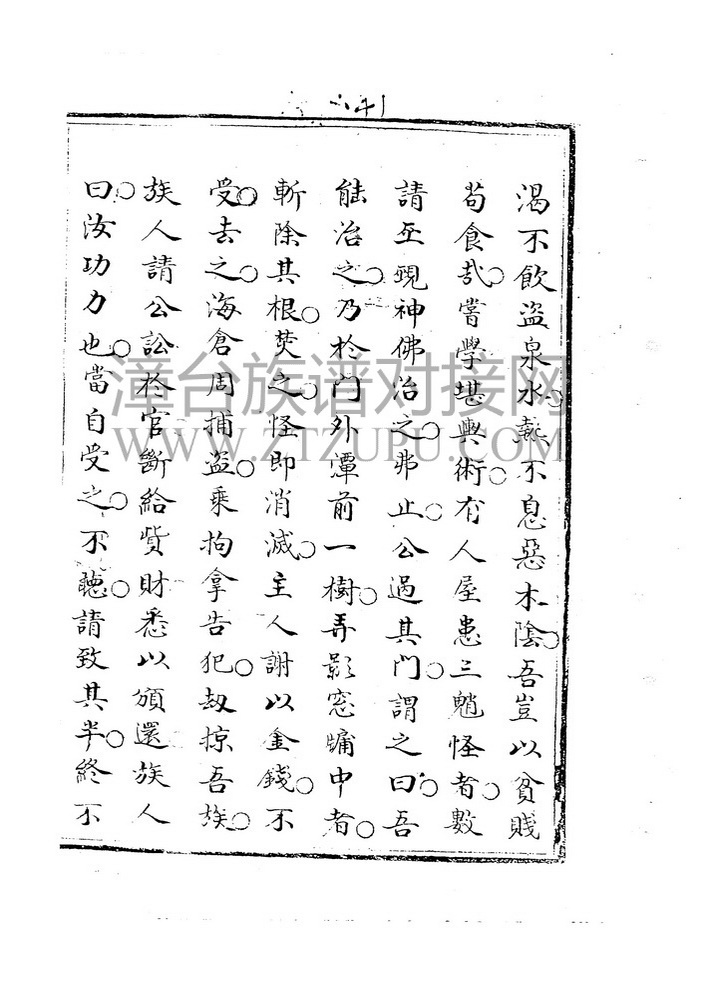 渴不飲盜泉水○熱不息惡木陰○吾豈以貧賤
苟食哉○嘗學堪輿術○有人屋患三魈怪者○數
請巫覡神佛治之○弗止○公過其門○謂之曰○吾
能治之○乃於門外潭前一樹○弄影窓牖中者○
斬除其根○焚之○怪即消滅○主人謝以金錢○不
受○去之○海倉周捕盜○乘拘拿告犯○刼掠吾族○
族人請公訟於官斷給貲財悉以頒還族人
曰○汝功力也○當自受之○不聽○請致其半○終不
漳台族谱对接网
WWW.ZTZUPU.COM